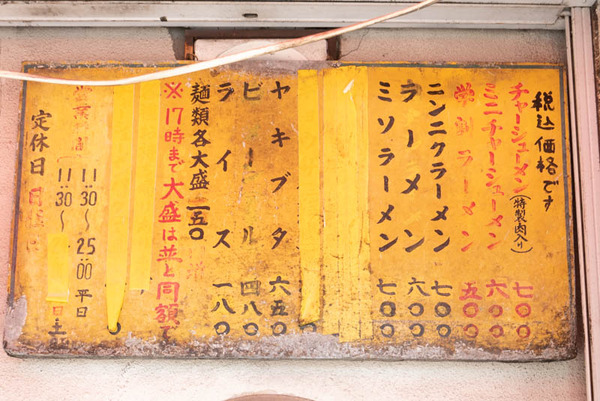 税込価格です
チャーシューメン(特製肉入り) 七〇〇
ミニチャーシューメン 六〇〇
学割ラーメン 五〇〇
ニンニクラーメン 七〇〇
ラーメン 六〇〇
ミソラーメン 七〇〇
ヤキブタ 六五〇
ビール 四八〇
ライス 一八〇
麺類各大盛 一五〇
※17時まで大盛は並と同額で
11:30〜25:00 平日
11:30〜
定休日